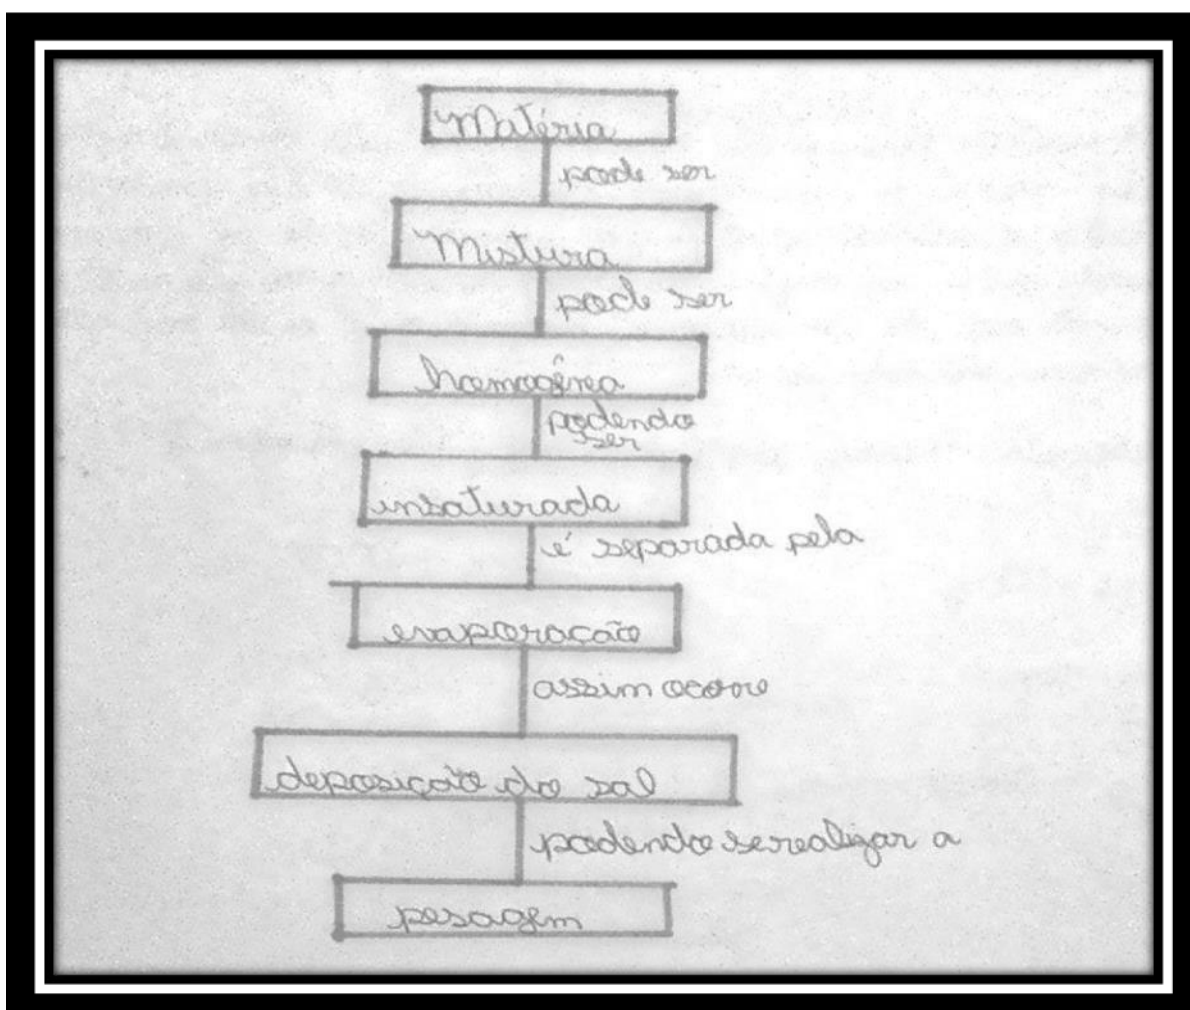 Matéria
pode ser
Mistura
pode ser
homogênea
podendo
ser
insaturada
é separada pela
evaporação
assim ocorre
deposição do sal
podendo se realizar a
pesagem